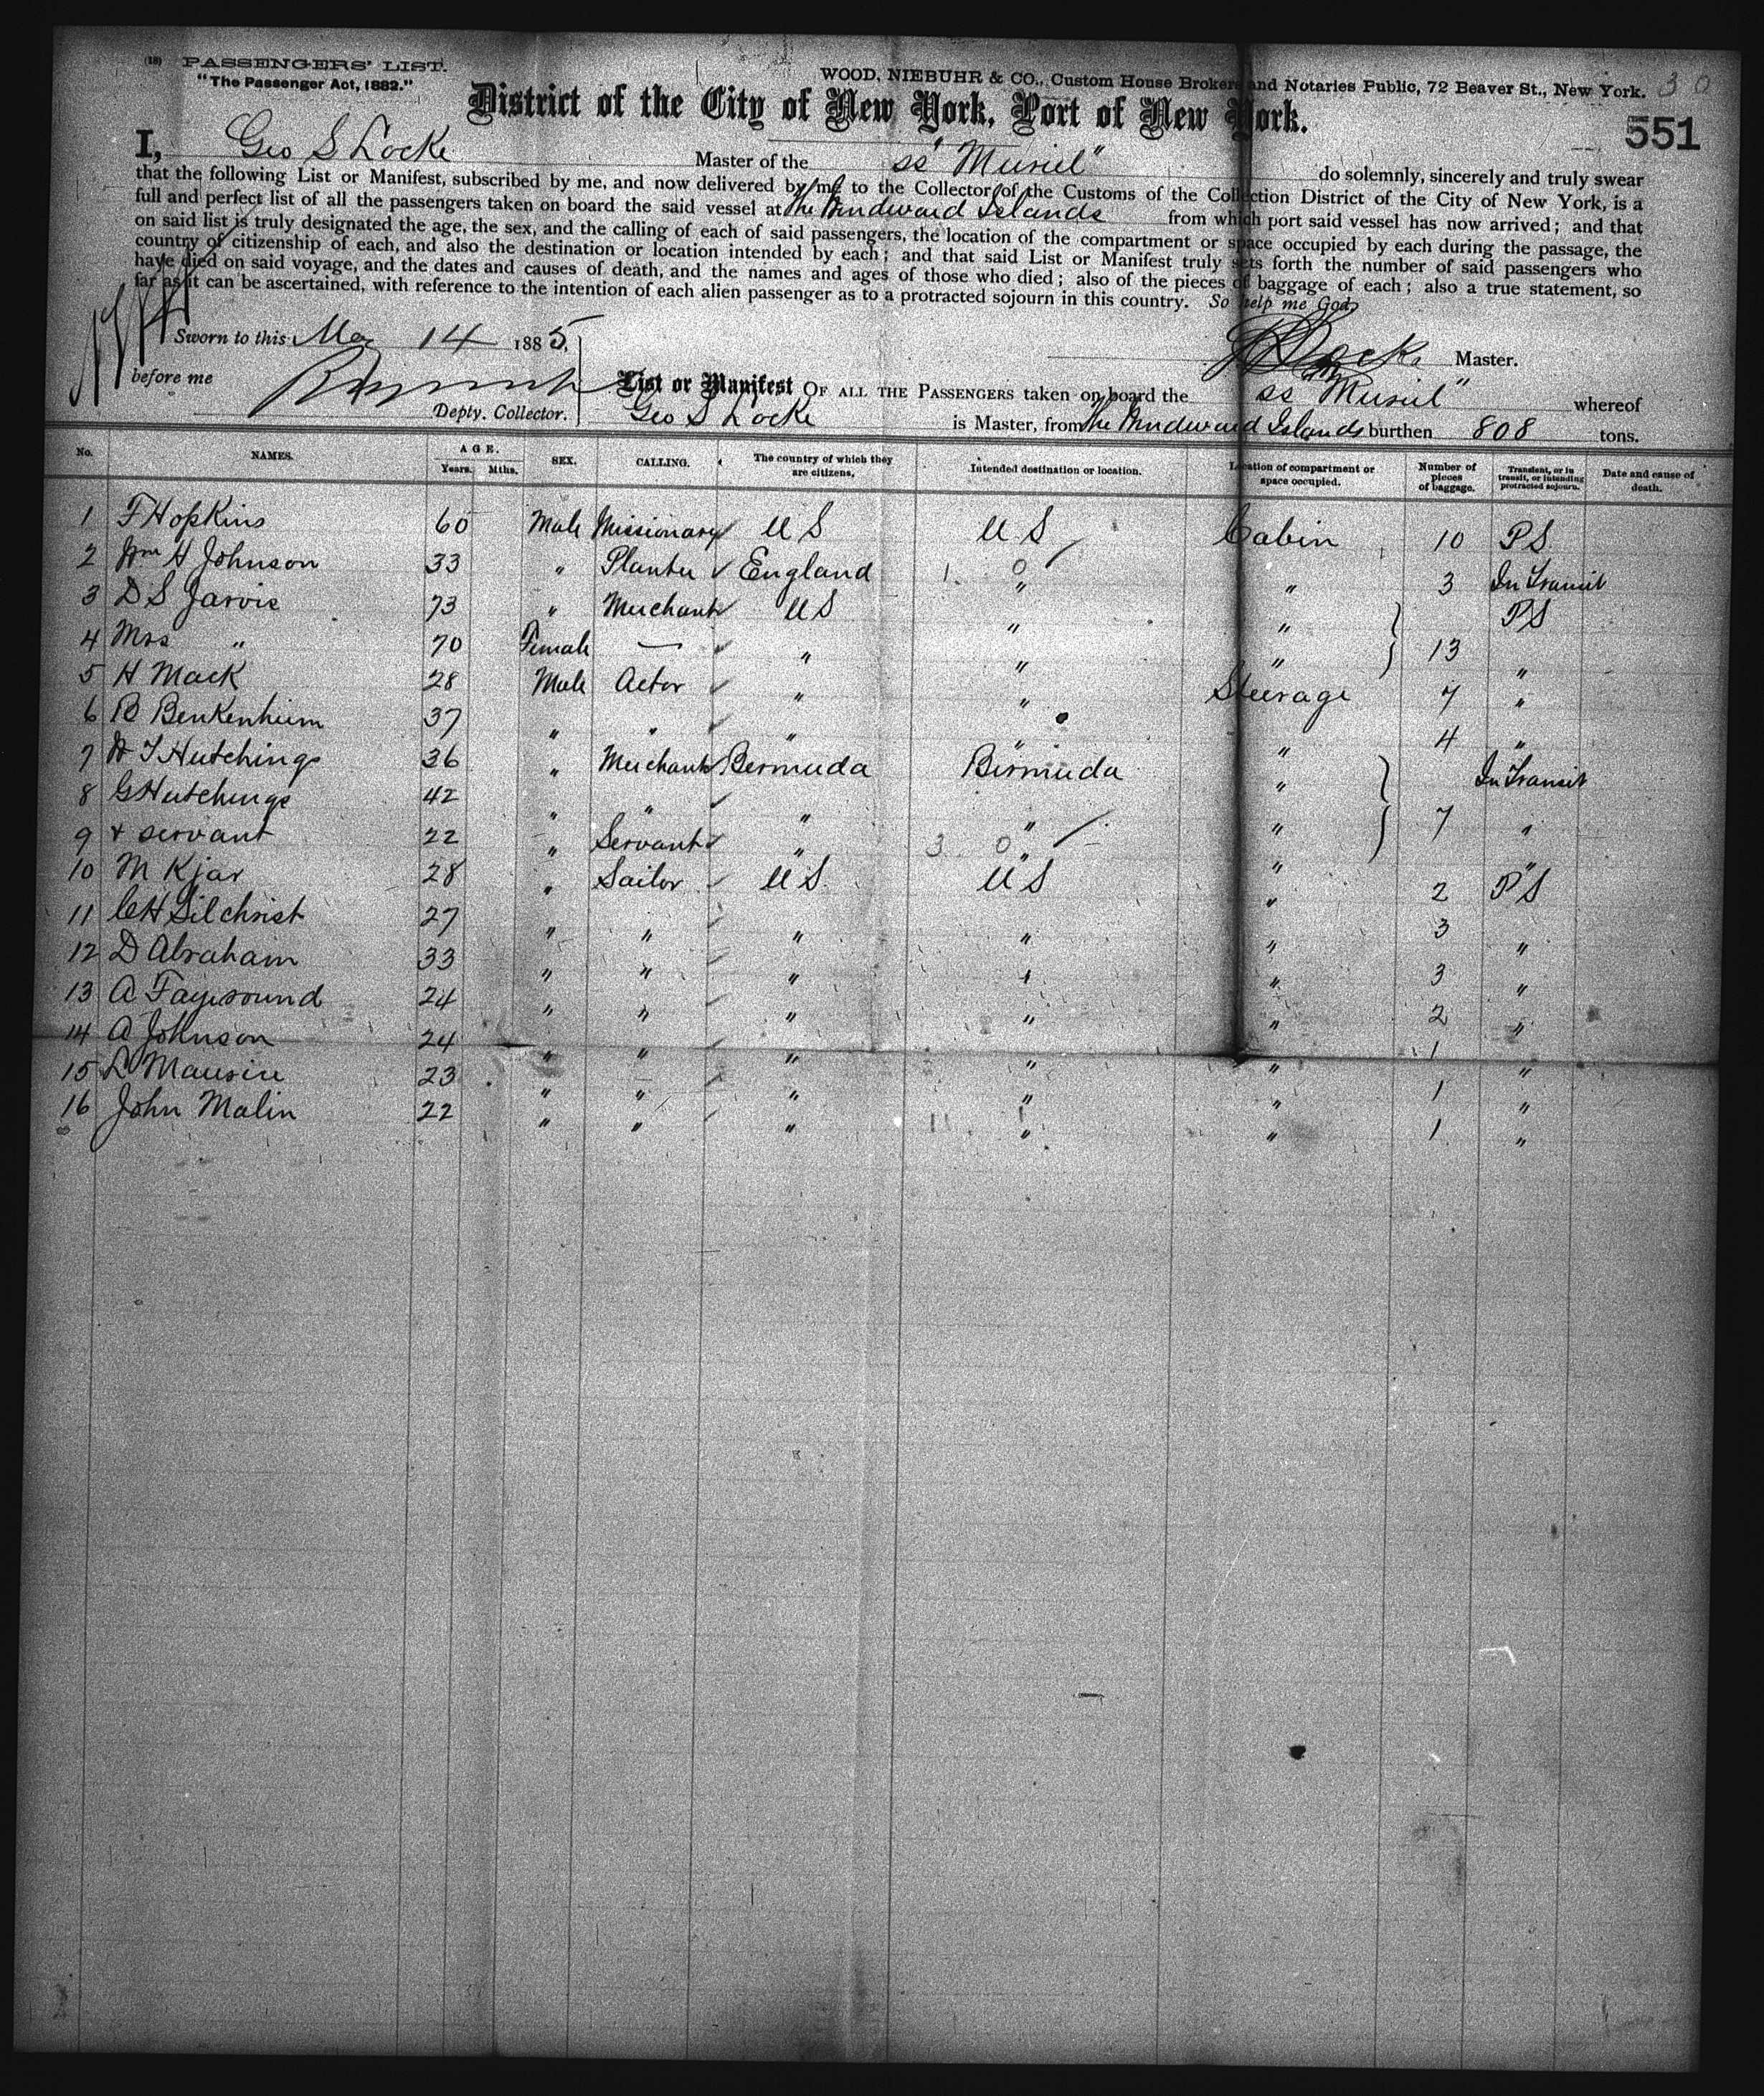 (18) PASSENGERS' LIST.
"The Passenger Act, 1882."
WOOD, NIEBUHR & CO., Custom House Brokers and Notaries Public, 72 Beaver St., New York. 30
District of the City of New York, Port of New York.
551
I, Geo S Locke Master of the ss "Muriel" do solemnly, sincerely and truly swear
that the following List or Manifest, subscribed by me, and now delivered by me to the Collector of the Customs of the Collection District of the City of New York, is a
full and perfect list of all the passengers taken on board the said vessel at the Windward Islands from which port said vessel has now arrived; and that
on said list is truly designated the age, the sex, and the calling of each of said passengers, the location of the compartment or space occupied by each during the passage, the
country of citizenship of each, and also the destination or location intended by each; and that said List or Manifest truly sets forth the number of said passengers who
have died on said voyage, and the dates and causes of death, and the names and ages of those who died; also of the pieces of baggage of each; also a true statement, so
far as it can be ascertained, with reference to the intention of each alien passenger as to a protracted sojourn in this country. So help me God,
Sworn to this Mar 14 1885,
Locke Master.
before me
Depty. Collector.
List or Manifest OF ALL THE PASSENGERS taken on board the ss "Muriel" whereof
Geo S Locke is Master, from the Windward Islands burthen 808 tons.
No. NAMES. AGE. Years. Mths. SEX. CALLING. The country of which they are citizens. Intended destination or location. Location of compartment or space occupied. Number of pieces of baggage. Transient, or in transit, or intending protracted sojourn. Date and cause of death.
1 F Hopkins 60 Male Missionary U S U S Cabin 10 P S
2 Wm H Johnson 33 " Planter England 1. 0 " " 3 In Transit
3 D S Jarvis 73 " Merchant U S " " P S
4 Mrs " 70 Female — " " " 13 "
5 H Mack 28 Male Actor " " Steerage 7 "
6 B Benkenheim 37 " " " " " 4 "
7 W T Hutchings 36 " Merchant Bermuda Bermuda " In Transit
8 G Hutchings 42 " " " " " 7 "
9 + servant 22 " Servant " 3. 0 " " "
10 M Kjar 28 " Sailor U S U S " 2 P S
11 C H Gilchrist 27 " " " " " 3 "
12 D Abraham 33 " " " " " 3 "
13 A 24 " " " " " 2 "
14 A Johnson 24 " " " " " 1 "
15 23 " " " " " 1 "
16 John Malin 22 " " " 11 " " 1 "